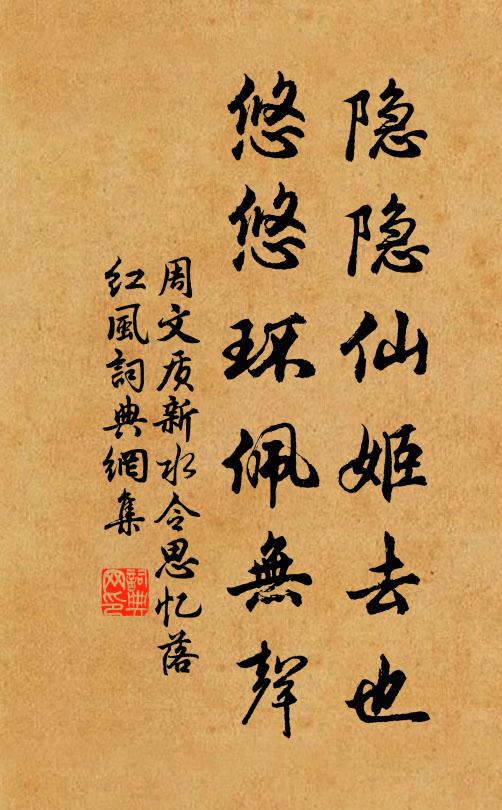 隐隐仙姬去也
悠悠环佩無聲
周文质新水令思忆落
红風詞典網集
詞典
网印